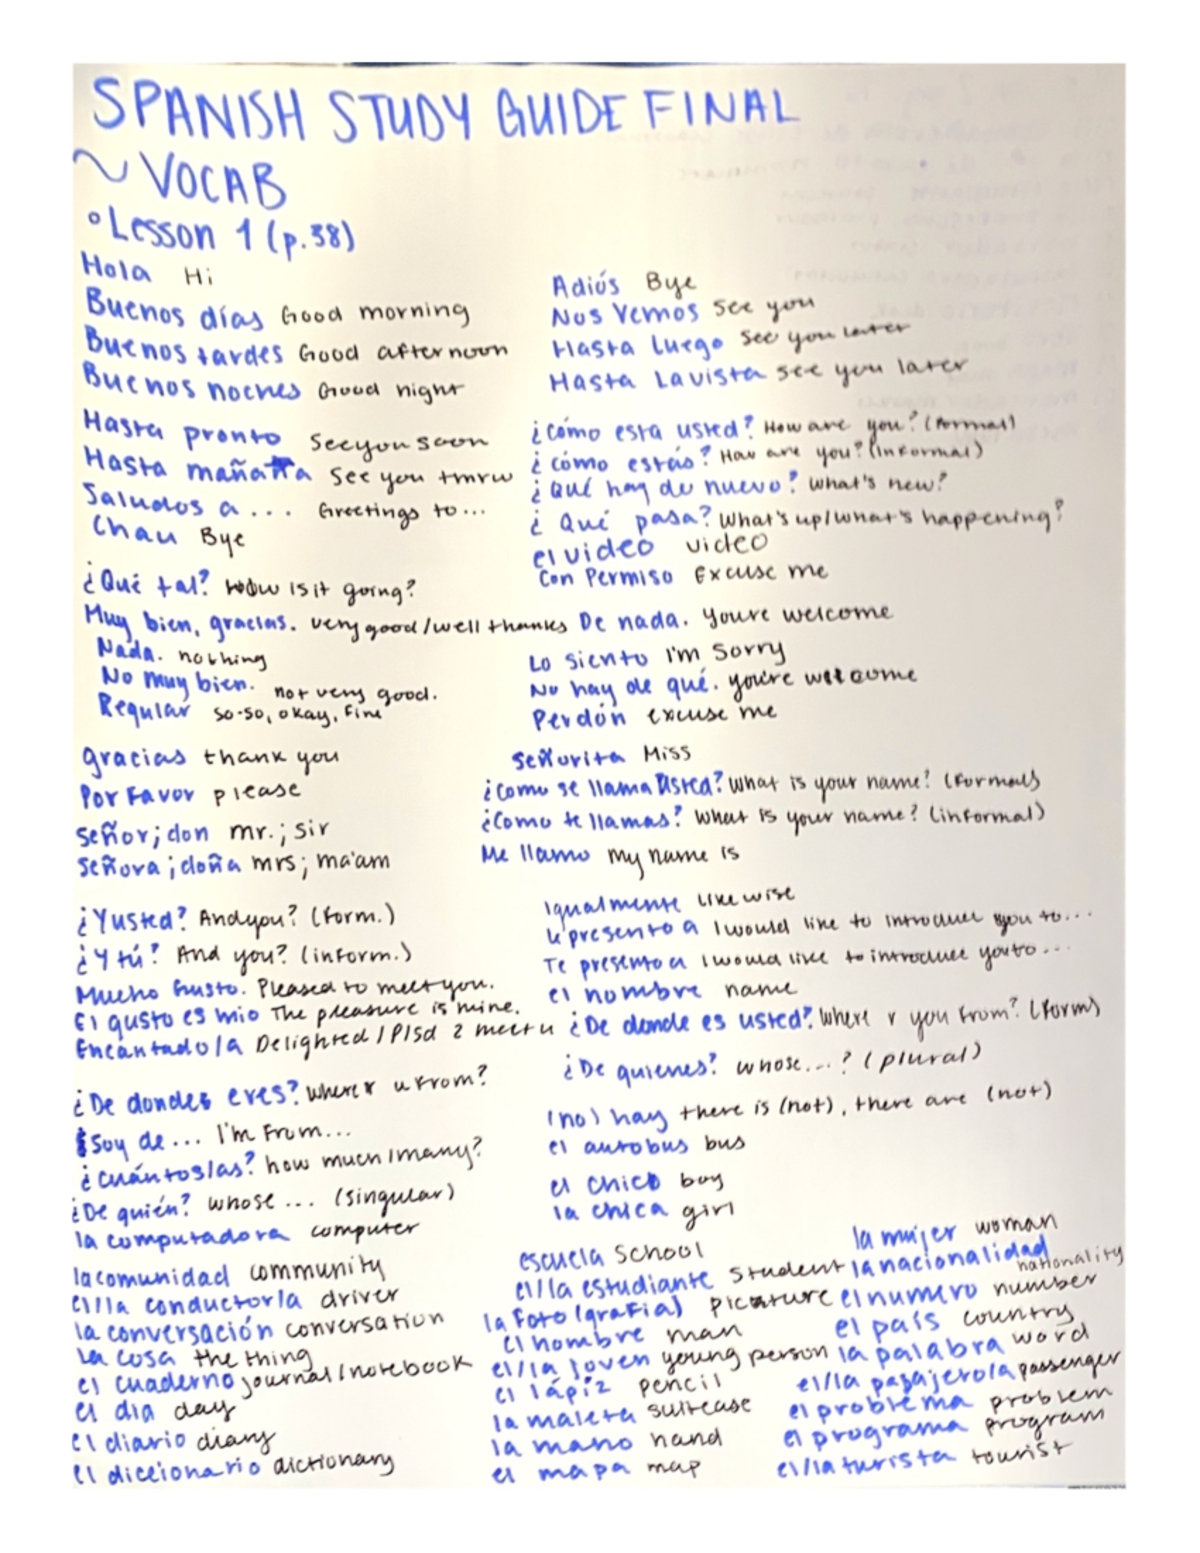 SPANISH STUDY GUIDE FINAL
~ VOCAB
° Lesson 1 (p.38)
Hola Hi
Buenos días Good morning
Buenos tardes Good afternoon
Buenos noches Good night
Adiós Bye
Nos Vemos See you
Hasta luego See you later
Hasta La vista see you later
Hasta pronto See you soon
Hasta mañana See you tmrw
Saludos a ... Greetings to...
Chau Bye
¿Cómo esta usted? How are you? (formal)
¿cómo estás? How are you? (informal)
¿Qué hay de nuevo? What's new?
¿Qué pasa? What's up/what's happening?
el video video
Con Permiso Excuse me
¿Qué tal? How is it going?
Muy bien, gracias. very good/well thanks
Nada. nothing
No muy bien. not very good.
Regular so-so, okay, fine
De nada. youre welcome
Lo siento I'm sorry
No hay de qué. you're welcome
Perdón excuse me
gracias thank you
Por Favor please
señor; don mr.; sir
señora; doña mrs; ma'am
señorita Miss
¿Como se llama usted? What is your name? (Formal)
¿Como te llamas? What is your name? (informal)
Me llamo my name is
¿Y usted? And you? (form.)
¿Y tú? And you? (inform.)
Mucho Gusto. Pleased to meet you.
El gusto es mio The pleasure is mine.
Encantado/a Delighted / Plsd 2 meet u
Igualmente likewise
le presento a I would like to introduce you to...
Te presento a I would like to introduce you to...
el nombre name
¿De donde es usted? Where r you from? (form)
¿De quienes? whose...? (plural)
¿De dondes eres? Where r u from?
Soy de ... I'm From...
¿cuántos/as? how much/many?
¿De quién? whose ... (singular)
la computadora computer
(no) hay there is (not), there are (not)
el autobus bus
el chico boy
la chica girl
la comunidad community
el/la conductor/a driver
la conversación conversation
La cosa the thing
el cuaderno journal/notebook
el dia day
el diario diary
el diccionario dictionary
escuela school
el/la estudiante student
la foto (grafia) picture
el hombre man
el/la joven young person
el lápiz pencil
la maleta suitcase
la mano hand
el mapa map
la mujer woman
la nacionalidad nationality
el numero number
el país country
la palabra word
el/la pasajero/a passenger
el problema problem
el programa program
el/la turista tourist